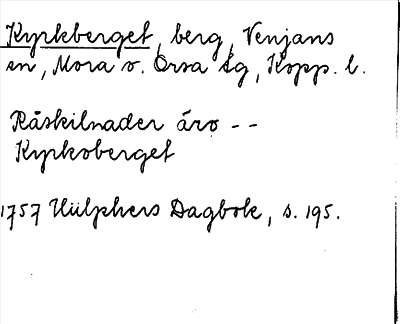 Kyrkberget, berg, Venjans
sn, Mora o. Orsa tg, Kopp. l.
Råskilnader äro --
Kyrkoberget
1757 Hülphers Dagbok, s. 195.